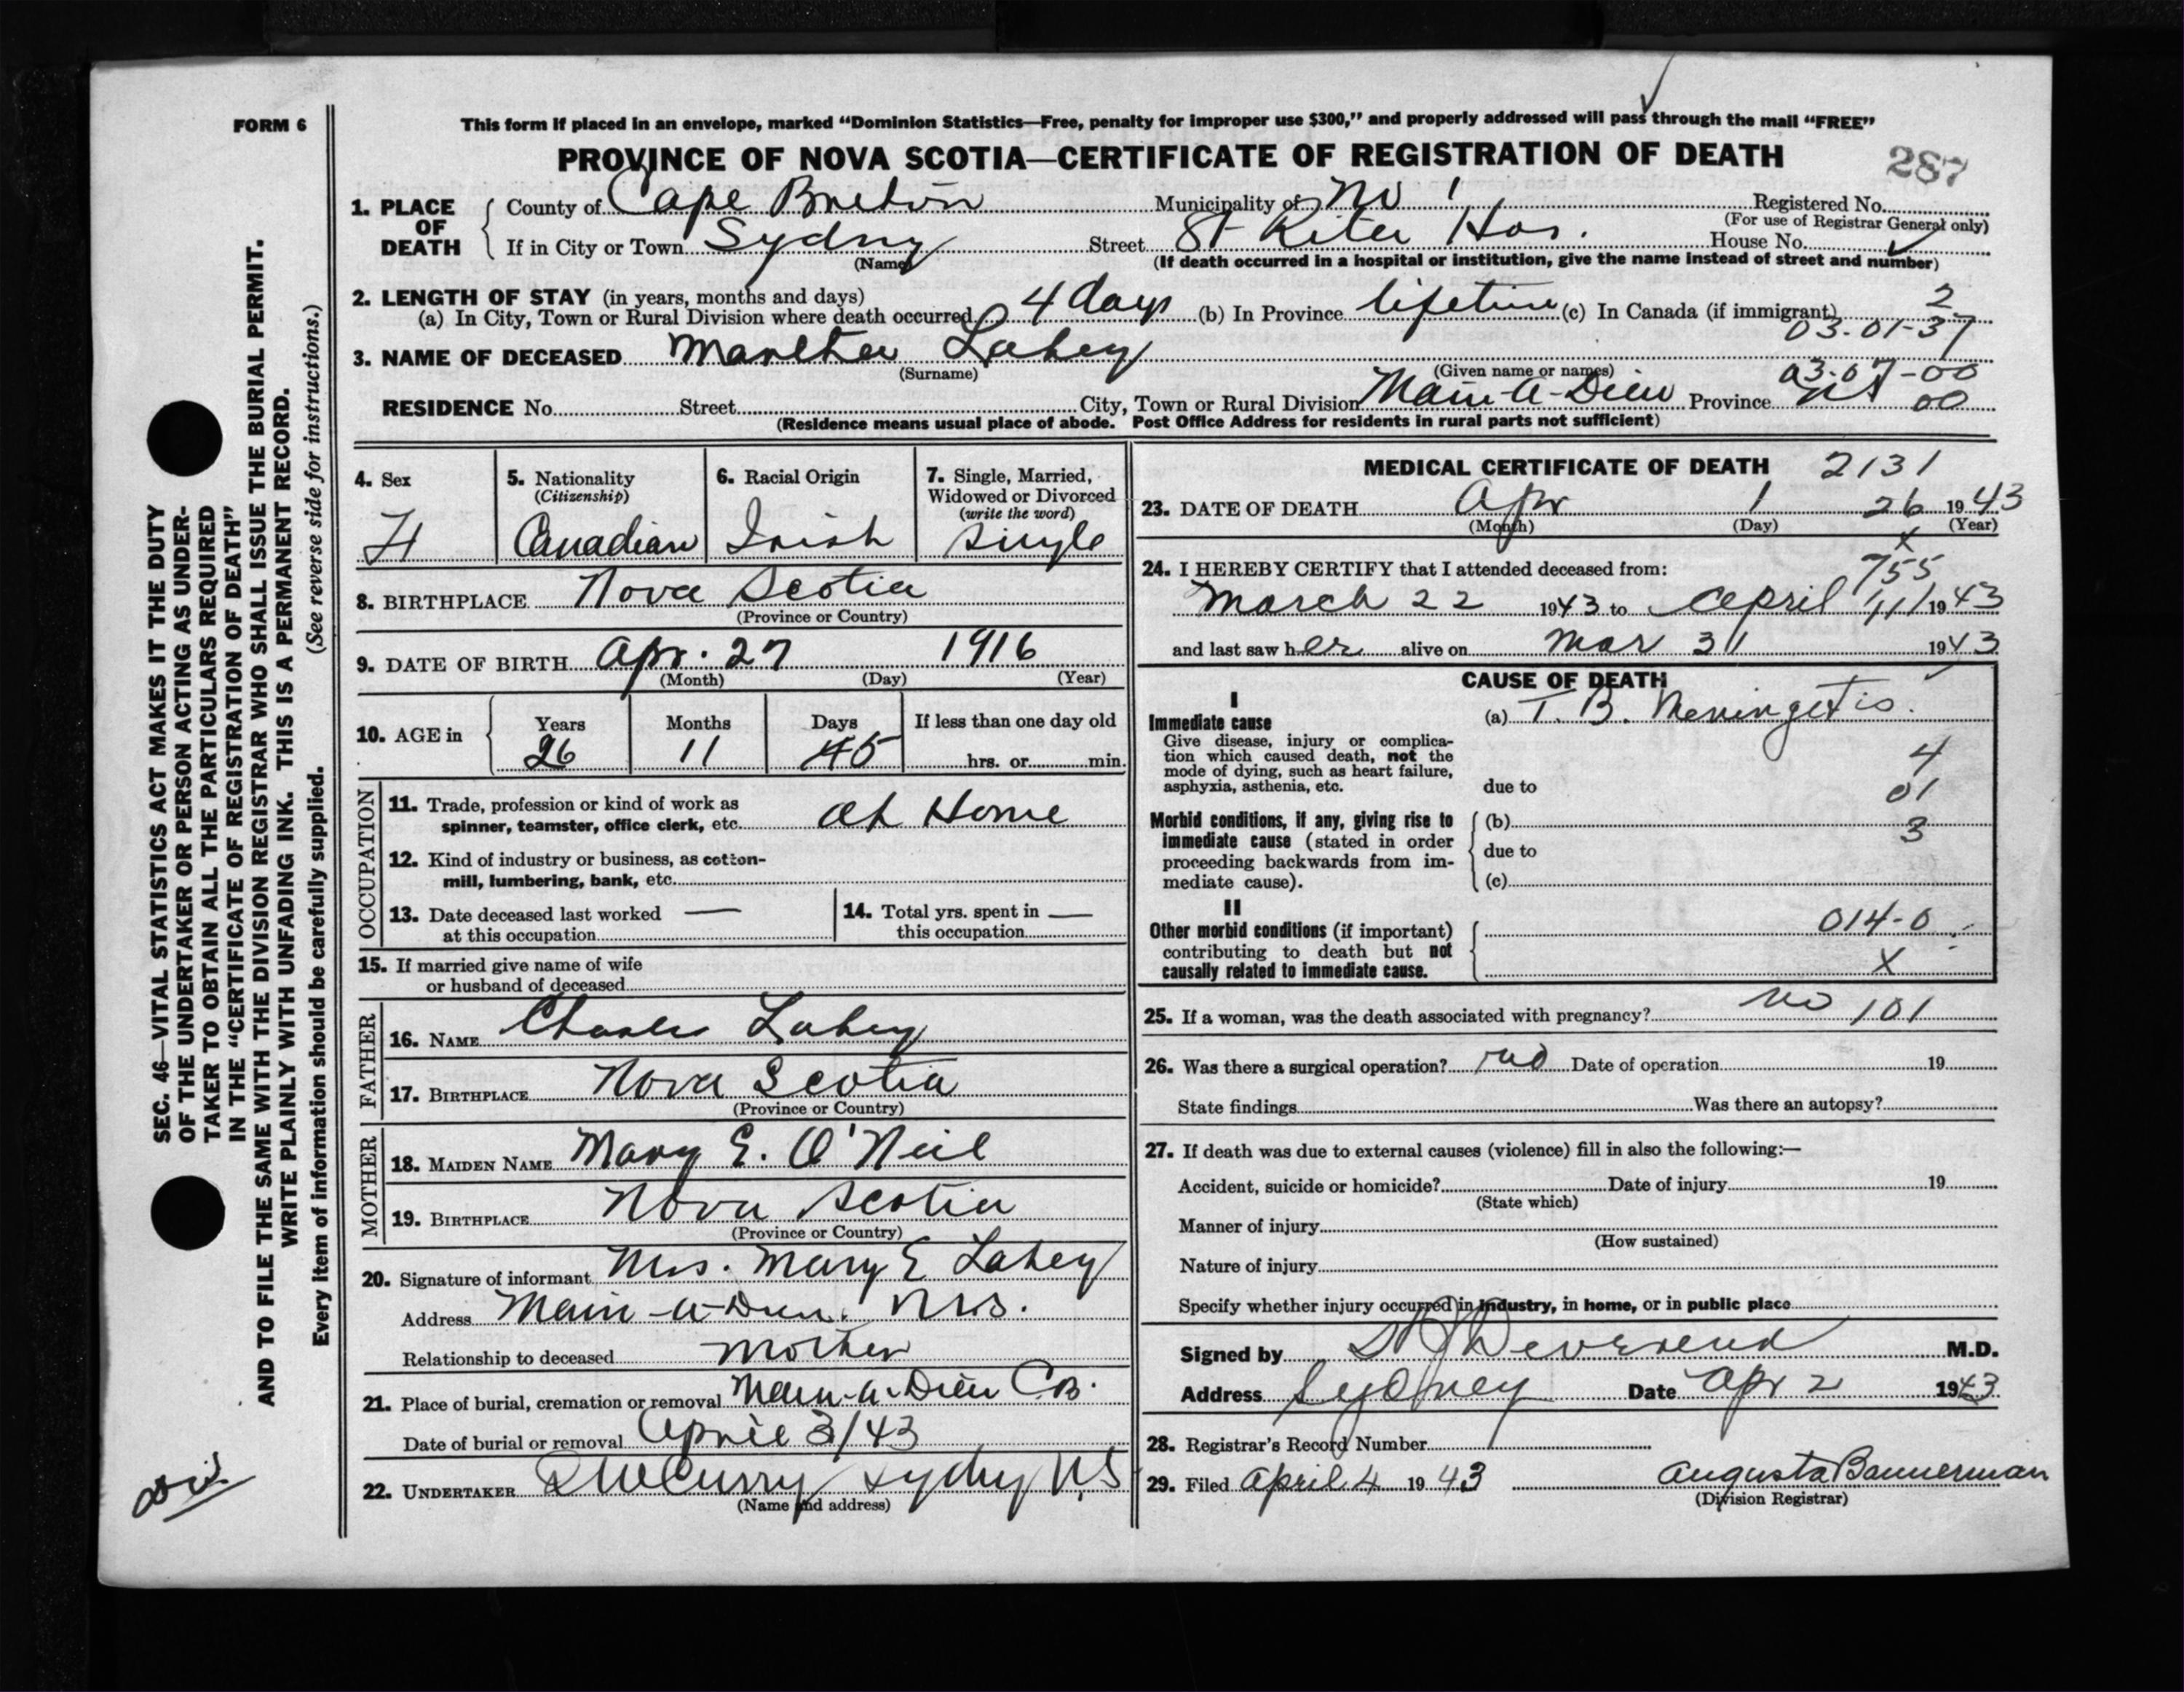 FORM 6
This form if placed in an envelope, marked "Dominion Statistics—Free, penalty for improper use $300," and properly addressed will pass through the mail "FREE"
PROVINCE OF NOVA SCOTIA—CERTIFICATE OF REGISTRATION OF DEATH
287
1. PLACE OF DEATH
County of Cape Breton Municipality of No 1 Registered No.
(For use of Registrar General only)
If in City or Town Sydney Street St Rita Hos. House No.
(Name) (If death occurred in a hospital or institution, give the name instead of street and number)
2. LENGTH OF STAY (in years, months and days)
(a) In City, Town or Rural Division where death occurred 4 days (b) In Province lifetime (c) In Canada (if immigrant) 2
03-01-37
3. NAME OF DECEASED Martha Lahey
(Surname) (Given name or names) 03-07-00
RESIDENCE No. Street City, Town or Rural Division Main-a-Dieu Province NS 00
(Residence means usual place of abode. Post Office Address for residents in rural parts not sufficient)
4. Sex
5. Nationality (Citizenship)
6. Racial Origin
7. Single, Married, Widowed or Divorced (write the word)
Canadian Irish Single
8. BIRTHPLACE Nova Scotia
(Province or Country)
9. DATE OF BIRTH Apr. 27 1916
(Month) (Day) (Year)
10. AGE in Years Months Days If less than one day old
26 11 hrs. or min.
OCCUPATION
11. Trade, profession or kind of work as spinner, teamster, office clerk, etc. At Home
12. Kind of industry or business, as cotton-mill, lumbering, bank, etc.
13. Date deceased last worked — at this occupation
14. Total yrs. spent in — this occupation
15. If married give name of wife or husband of deceased
FATHER
16. NAME Charles Lahey
17. BIRTHPLACE Nova Scotia
(Province or Country)
MOTHER
18. MAIDEN NAME Mary E. O'Neil
19. BIRTHPLACE Nova Scotia
(Province or Country)
20. Signature of informant Mrs. Mary E Lahey
Address Main-a-Dieu. N.S.
Relationship to deceased Mother
21. Place of burial, cremation or removal Main-a-Dieu C.B.
Date of burial or removal April 3/43
22. UNDERTAKER McCurry Sydney N.S
(Name and address)
MEDICAL CERTIFICATE OF DEATH 2131
23. DATE OF DEATH Apr 1 26 1943
(Month) (Day) (Year)
x
24. I HEREBY CERTIFY that I attended deceased from: 755
March 22 1943 to April 1943
and last saw her alive on Mar 31 1943
CAUSE OF DEATH
I
Immediate cause
Give disease, injury or complication which caused death, not the mode of dying, such as heart failure, asphyxia, asthenia, etc.
(a) T. B. Meningetis.
4
due to 01
Morbid conditions, if any, giving rise to immediate cause (stated in order proceeding backwards from immediate cause).
(b) 3
due to
(c)
II
Other morbid conditions (if important) contributing to death but not causally related to immediate cause.
014-0
X
25. If a woman, was the death associated with pregnancy? no 101
26. Was there a surgical operation? no Date of operation 19
State findings Was there an autopsy?
27. If death was due to external causes (violence) fill in also the following:—
Accident, suicide or homicide? Date of injury 19
(State which)
Manner of injury
(How sustained)
Nature of injury
Specify whether injury occurred in industry, in home, or in public place
Signed by Devereux M.D.
Address Sydney Date Apr 2 1943
28. Registrar's Record Number
29. Filed April 4 1943 Augusta Bannerman
(Division Registrar)
SEC. 46—VITAL STATISTICS ACT MAKES IT THE DUTY
OF THE UNDERTAKER OR PERSON ACTING AS UNDER-
TAKER TO OBTAIN ALL THE PARTICULARS REQUIRED
IN THE "CERTIFICATE OF REGISTRATION OF DEATH"
AND TO FILE THE SAME WITH THE DIVISION REGISTRAR WHO SHALL ISSUE THE BURIAL PERMIT.
WRITE PLAINLY WITH UNFADING INK. THIS IS A PERMANENT RECORD.
Every item of information should be carefully supplied. (See reverse side for instructions.)